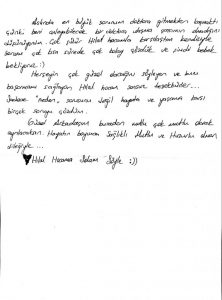 Aslında en büyük sorunum doktora gitmekten kaçmaktı
çünkü beni anlayabilecek bir doktora düşme şansımın olmadığını
düşünüyordum. Çok şükür Hilal hocamla karşılaştım kendisiyle
sorunu çok kısa sürede çok kolay çözdük ve şimdi bebek
bekliyoruz :)
Herşeyin çok güzel olacağını söyleyen ve bunu
başarmamı sağlayan Hilal hocam sonsuz teşekkürler...
Sadece "neden" sorusunu değil hayata ve yaşama karşı
birçok soruyu çözdüm.
Güzel Arkadaşım buradan mutlu çok mutlu olarak
ayrılacaksın. Hayatın boyunca Sağlıklı Mutlu ve Huzurlu olman
dileğiyle...
Hilal Hocama Selam Söyle :))